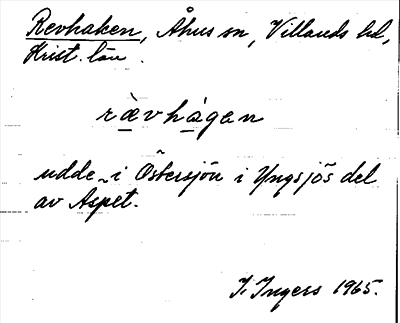 Revhaken, Åhus sn, Villands hd,
Krist. län.
rævhagen
udde i Östersjön i Yngsjös del
av Äspet.
I. Ingers 1965.